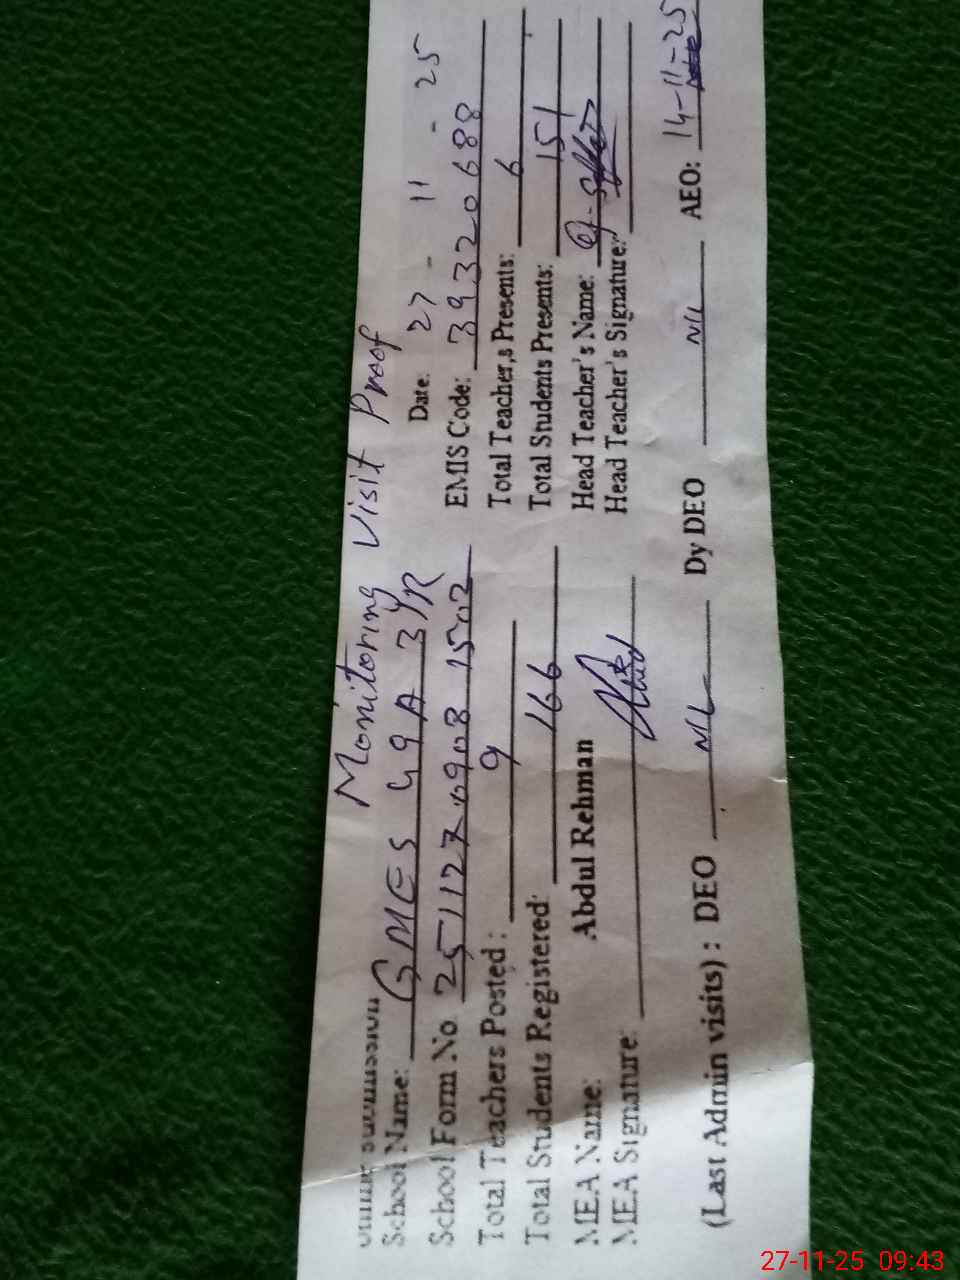 Monitoring Visit Proof
Date: 27 - 11 - 25
School Name: GMES 49A 3/R
School Form No 25112709081502
EMIS Code: 39320688
Total Teachers Posted: 9
Total Teacher,s Presents: 6
Total Students Registered: 166
Total Students Presents: 151
MEA Name: Abdul Rehman
Head Teacher's Name:
MEA Signature:
Head Teacher's Signature:
(Last Admin visits) : DEO NIL Dy DEO NIL AEO: 14-11-25
27-11-25 09:43